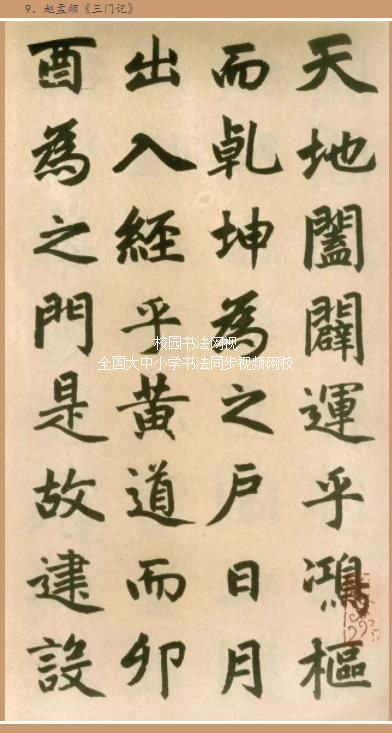 9、赵孟頫《三门记》
天地闔闢運乎鴻樞
而乹坤為之戶日月
出入經乎黃道而卯
酉為之門是故建設
校园书法网视
全国大中小学书法同步视频网校